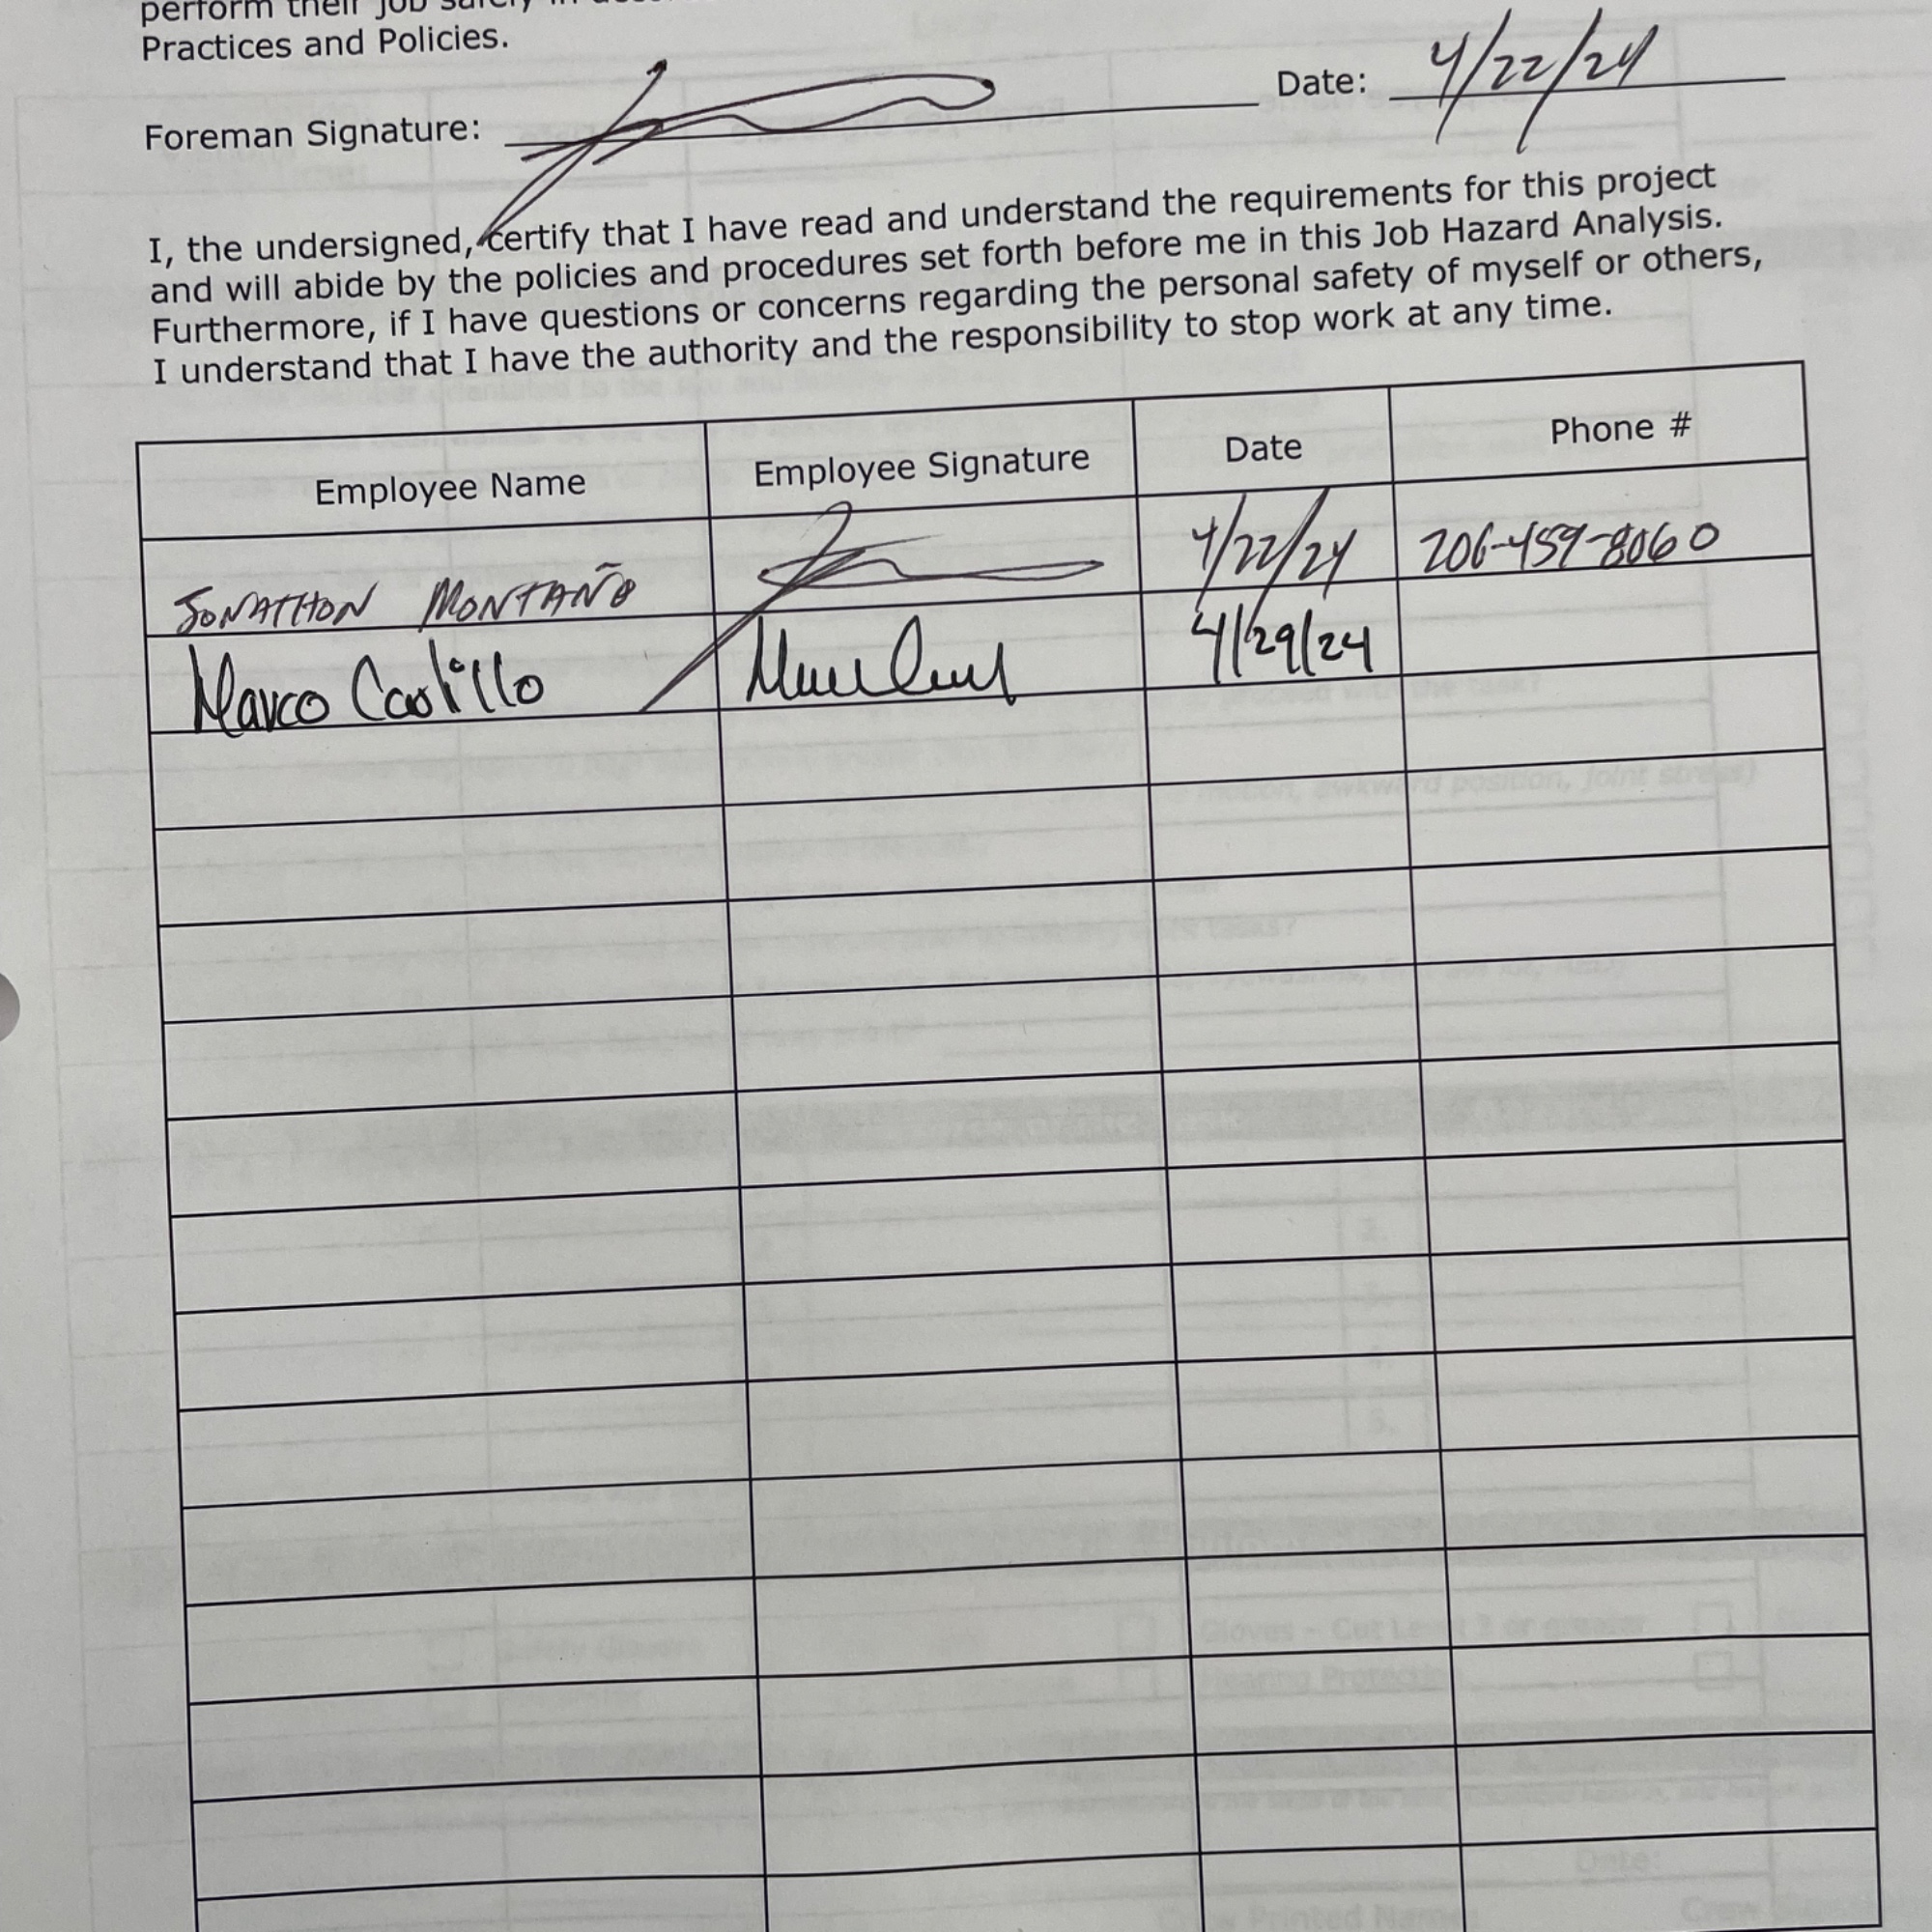 perform their job safely in
Practices and Policies.
Foreman Signature:
Date: 4/22/24
I, the undersigned, certify that I have read and understand the requirements for this project
and will abide by the policies and procedures set forth before me in this Job Hazard Analysis.
Furthermore, if I have questions or concerns regarding the personal safety of myself or others,
I understand that I have the authority and the responsibility to stop work at any time.
Employee Name Employee Signature Date Phone #
JONATHON MONTAÑO 4/22/24 206-459-8060
Marco Castillo 4/29/24